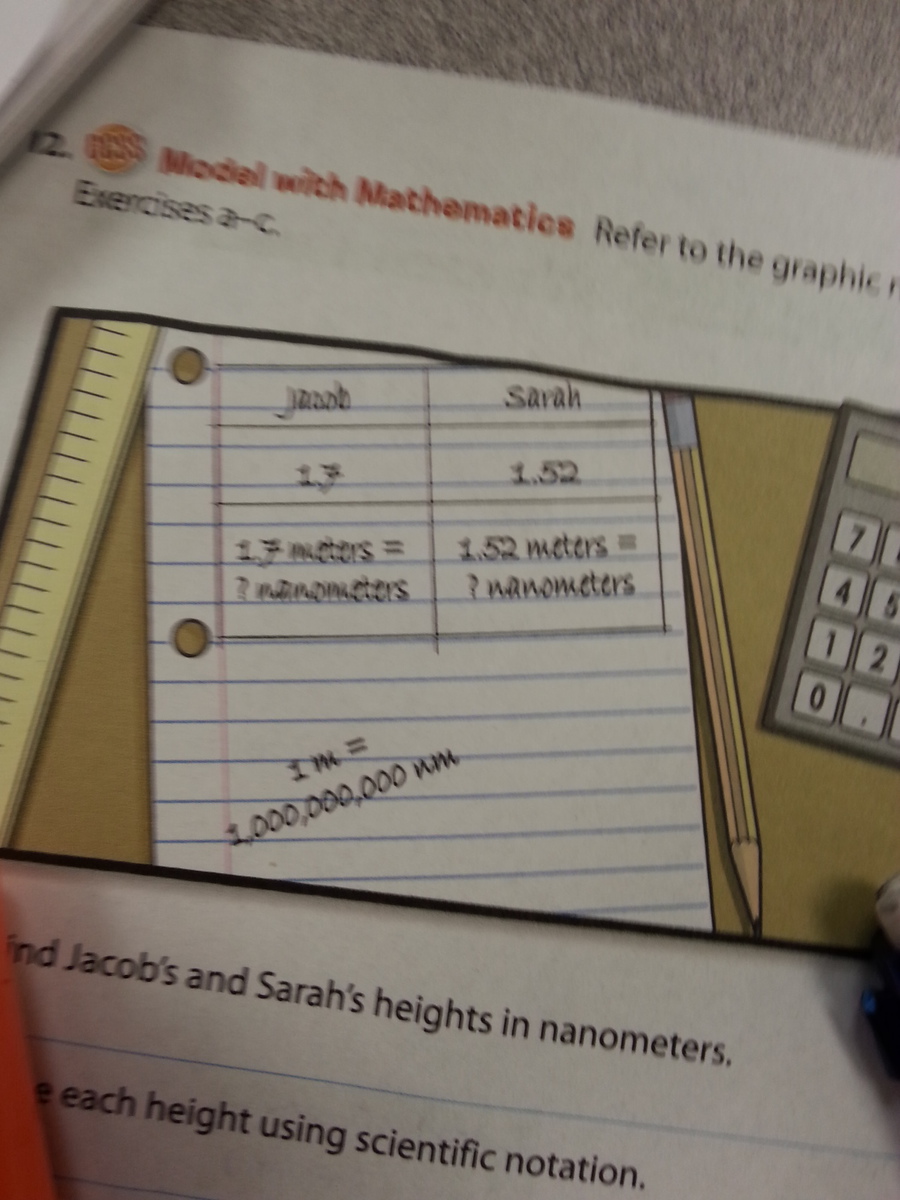 12. CCSS Model with Mathematics Refer to the graphic
Exercises a–c.
Jacob
Sarah
1.7
1.52
1.7 meters =
? nanometers
1.52 meters =
? nanometers
1 m =
1,000,000,000 nm
7
4 5
1 2
0 .
ind Jacob's and Sarah's heights in nanometers.
e each height using scientific notation.